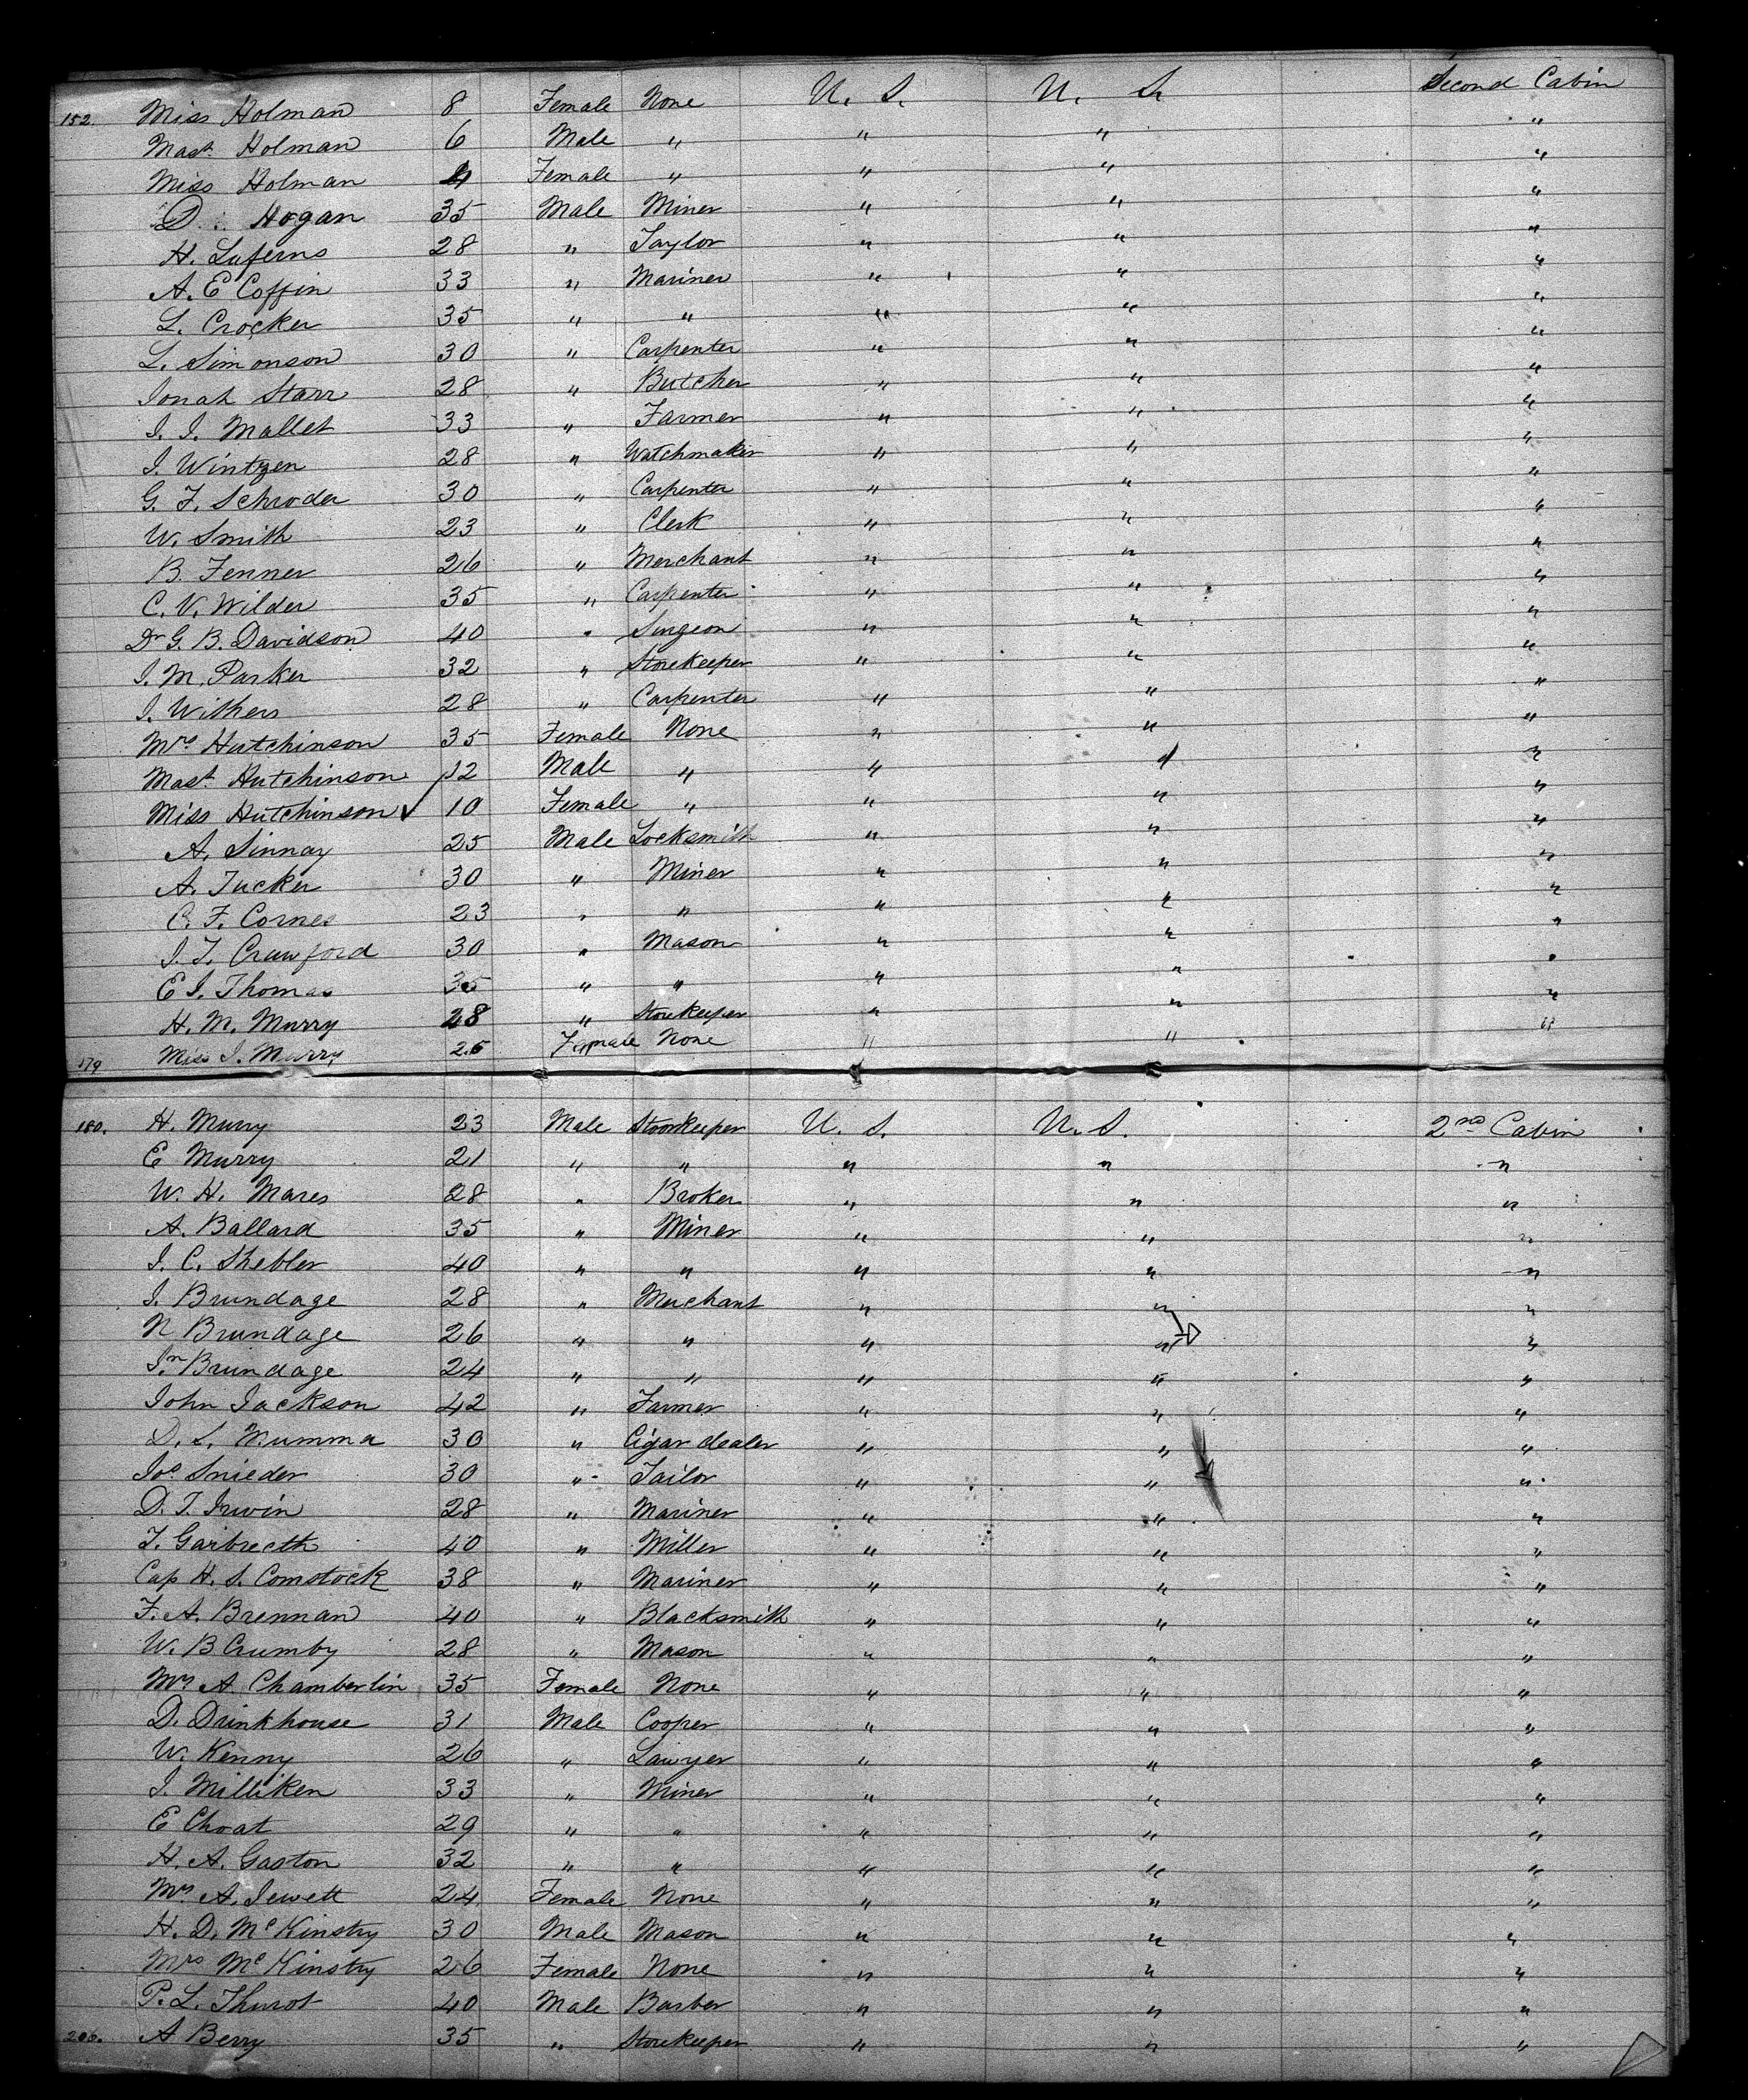 152. Miss Holman 8 Female None U. S. U. S. Second Cabin
Mast. Holman 6 Male " " " "
Miss Holman 4 Female " " " "
D. Hogan 35 Male Miner " " "
H. Luferns 28 " Taylor " " "
A. E Coffin 33 " Mariner " " "
L. Crocker 35 " " " " "
L. Simonson 30 " Carpenter " " "
Jonah Starr 28 " Butcher " " "
J. J. Mallet 33 " Farmer " " "
J. Wintzen 28 " Watchmaker " " "
G. F. Schroder 30 " Carpenter " " "
W. Smith 23 " Clerk " " "
B. Fenner 26 " Merchant " " "
C. V. Wilder 35 " Carpenter " " "
Dr G. B. Davidson 40 " Surgeon " " "
J. M. Parker 32 " Storekeeper " " "
J. Withers 28 " Carpenter " " "
Mrs Hutchinson 35 Female None " " "
Mast. Hutchinson 12 Male " " " "
Miss Hutchinson 10 Female " " " "
A. Sinnay 25 Male Locksmith " " "
A. Tucker 30 " Miner " " "
C. F. Cornes 23 " " " " "
J. T. Crawford 30 " Mason " " "
E J. Thomas 35 " " " " "
H. M. Murry 28 " Storekeeper " " "
179 Miss J. Murry 25 Female None " " "
180. H. Murry 23 Male Stoorkeeper U. S. U. S. 2nd Cabin
E Murry 21 " " " " "
W. H. Mares 28 " Broker " " "
A. Ballard 35 " Miner " " "
J. C. Shebler 40 " " " " "
J. Brundage 28 " Merchant " " "
N Brundage 26 " " " " "
Jn Brundage 24 " " " " "
John Jackson 42 " Farmer " " "
D. S. Mumma 30 " Cigar dealer " " "
Jos Snieder 30 " Tailor " " "
D. T. Irwin 28 " Mariner " " "
T. Garbrecth 40 " Miller " " "
Cap H. S. Comstock 38 " Mariner " " "
F. A. Brennan 40 " Blacksmith " " "
W. B Crumby 28 " Mason " " "
Mrs A. Chamberlin 35 Female None " " "
D. Drinkhouse 31 Male Cooper " " "
W. Kenny 26 " Lawyer " " "
J. Milliken 33 " Miner " " "
E Choat 29 " " " " "
H. A. Gaston 32 " " " " "
Mrs A. Jewett 24 Female None " " "
H. D. McKinstry 30 Male Mason " " "
Mrs McKinstry 26 Female None " " "
P. L. Thurot 40 Male Barber " " "
206. A Berry 35 " Storekeeper " " "